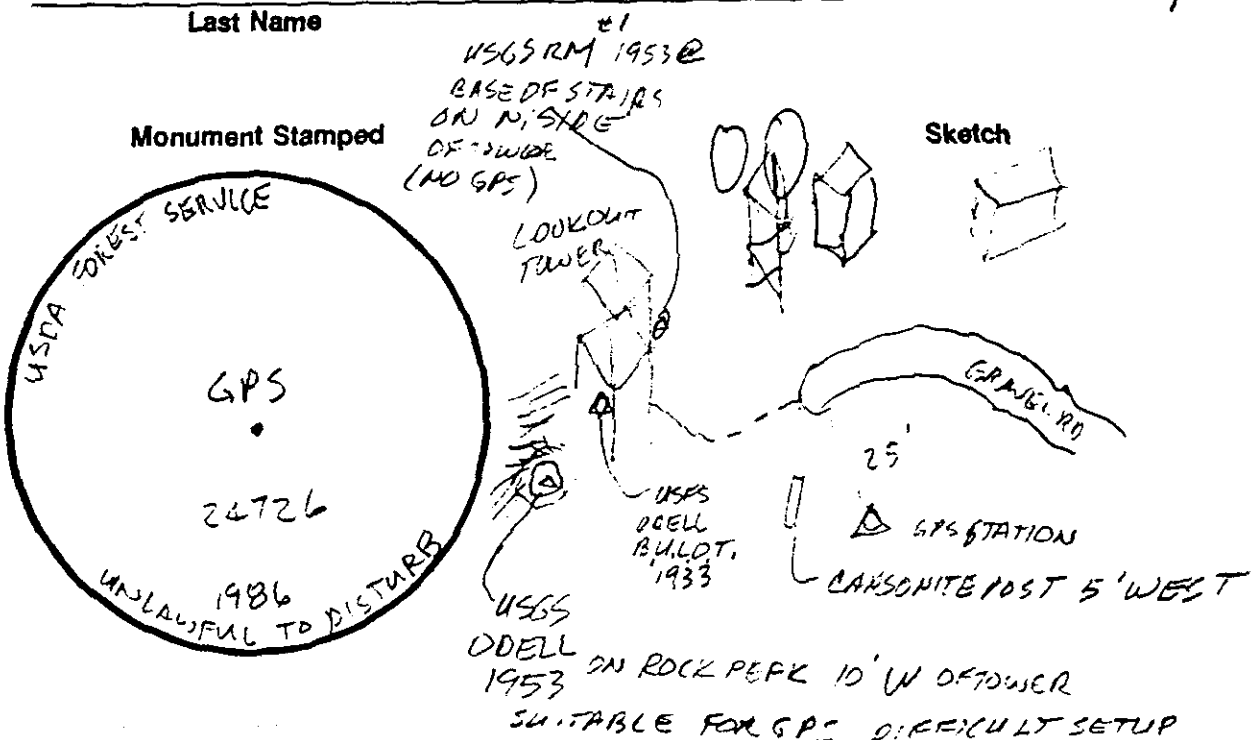 Last Name
#1
USGS RM 1953 @
BASE OF STAIRS
ON N. SIDE
OF TOWER
(NO GPS)
Monument Stamped
Sketch
USDA FOREST SERVICE
GPS
24726
1986
UNLAWFUL TO DISTURB
LOOKOUT
TOWER
GRAVEL RD
25'
GPS STATION
CARSONITE POST 5' WEST
USFS
ODELL
BU.LOT.
1933
USGS
ODELL
1953
ON ROCK PEAK 10' W OF TOWER
SUITABLE FOR GPS DIFFICULT SETUP